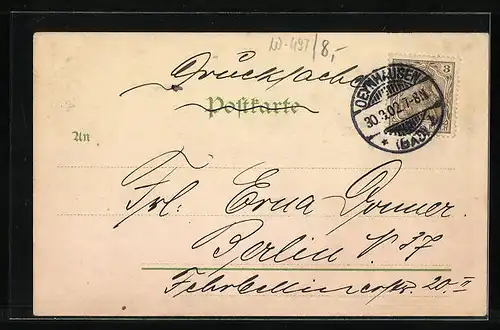 W-497/8,-
Drucksache
Postkarte
3
OEYNHAUSEN
30.3.02.7-8N.
* (BAD) *
3
An
Frl: Erna Donner.
Berlin N 37
Fehrbellinerstr. 20. II